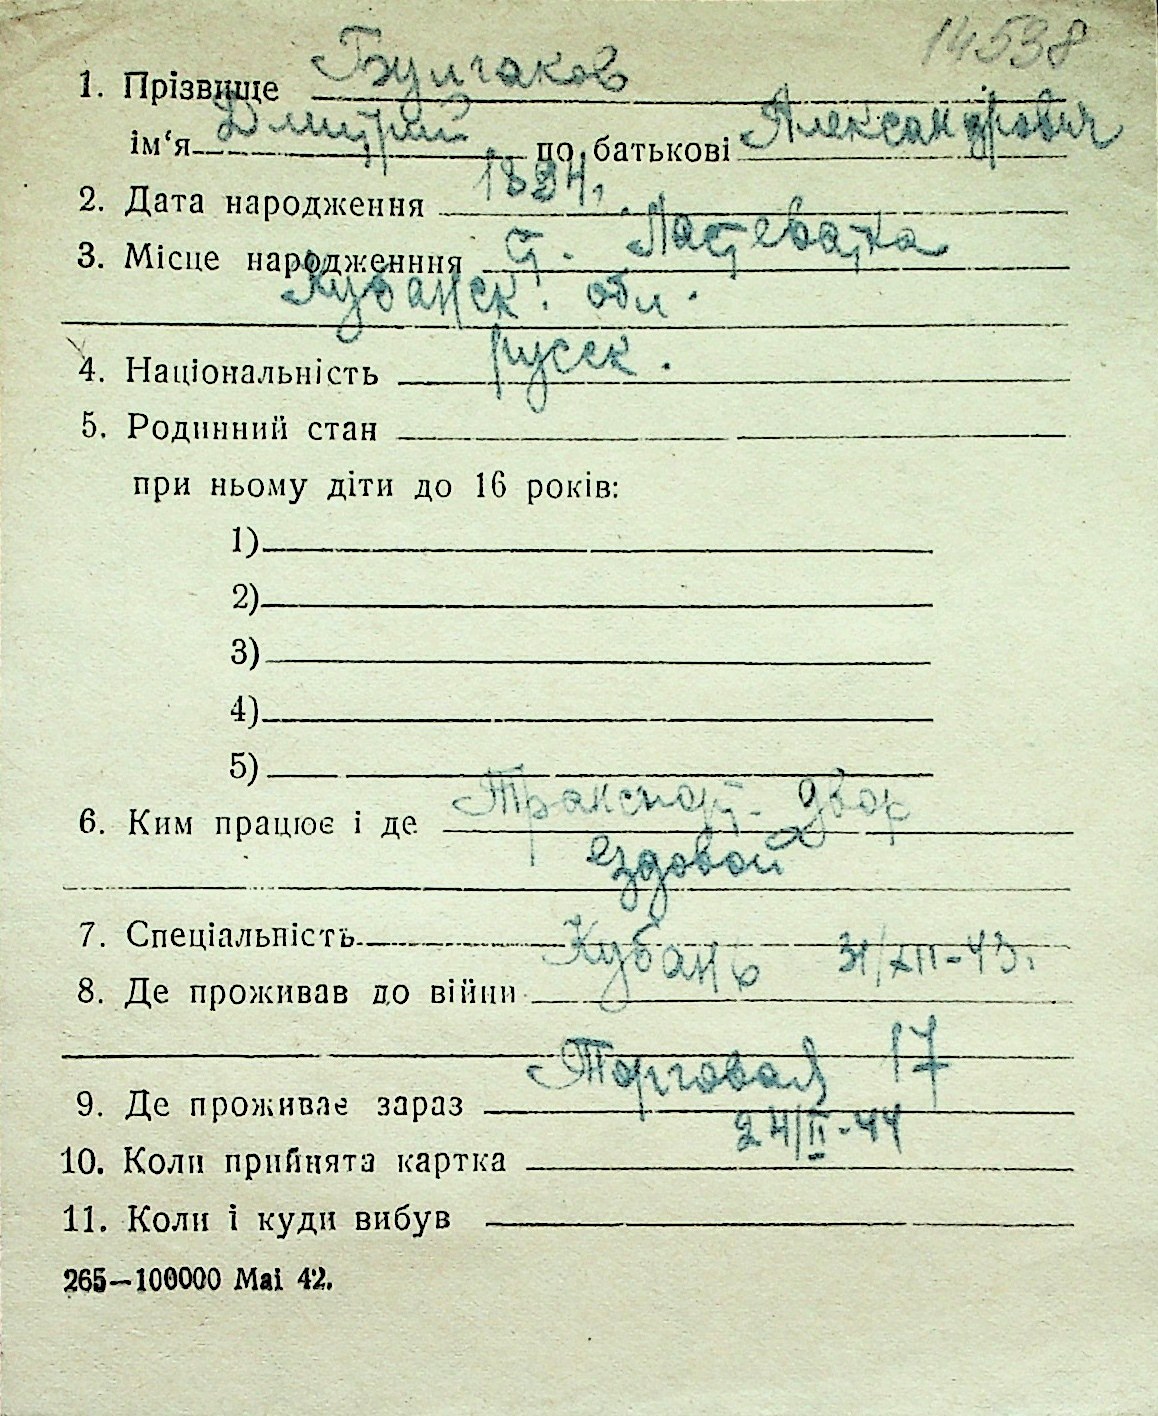 14538
1. Прізвище Булгаков
ім‘я Дмитрий по батькові Александрович
2. Дата народження 1894,
3. Місце народженння ст. Ластеватка
Кубанск. обл.
4. Національність русск.
5. Родинний стан
при ньому діти до 16 років:
1)
2)
3)
4)
5)
6. Ким працює і де Транспорт. двор
ездовой
7. Спеціальність
8. Де проживав до війни Кубань 31/XII-43.
9. Де проживає зараз Торговая 17
10. Коли прийнята картка 24/II-44
11. Коли і куди вибув
265—100000 Mai 42.